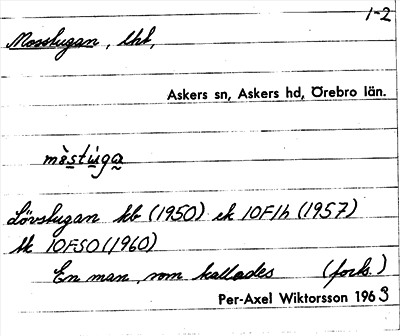 1-2
Mosstugan, tht,
Askers sn, Askers hd, Örebro län.
mɛ̀stùga
Lövstugan kb (1950) ek 10F1h (1957)
tk 10F50 (1960)
En man, som kallades (forts.)
Per-Axel Wiktorsson 1963